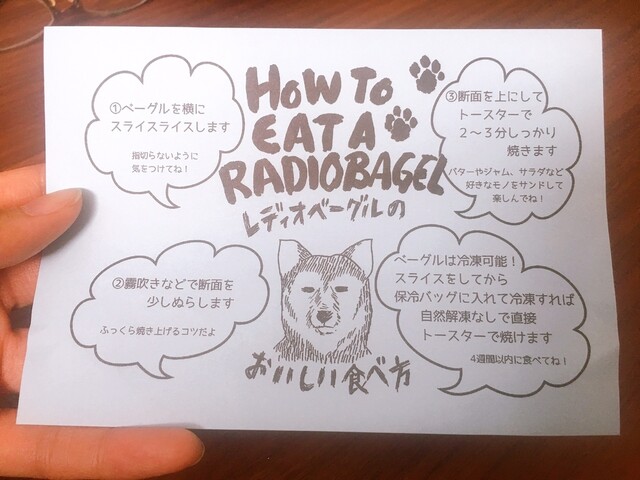 HOW TO
EAT A
RADIOBAGEL
レディオベーグルの
おいしい食べ方
①ベーグルを横に
スライスライスします
指切らないように
気をつけてね！
②霧吹きなどで断面を
少しぬらします
ふっくら焼き上げるコツだよ
③断面を上にして
トースターで
２～３分しっかり
焼きます
バターやジャム、サラダなど
好きなモノをサンドして
楽しんでね！
ベーグルは冷凍可能！
スライスをしてから
保冷バッグに入れて冷凍すれば
自然解凍なしで直接
トースターで焼けます
4週間以内に食べてね！